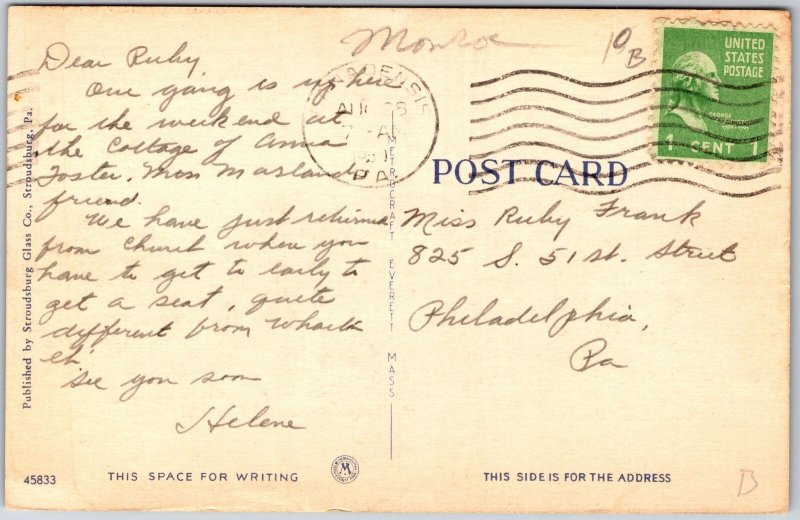 Monroe
10
B
Dear Ruby
Our gang is up here
for the weekend at
the Cottage of Anna
Foster, Miss Marland
friend.
We have just returned
from Church where you
have to get to early to
get a seat, quite
different from
eh
See you soon
Helene
UNITED
STATES
POSTAGE
GEORGE
1 CENT 1
AUG 26
PA
POST CARD
Miss Ruby Frank
825 S. 51 st. Street
Philadelphia,
Pa
Published by Stroudsburg Glass Co., Stroudsburg, Pa.
METROCRAFT EVERETT MASS
M
45833
THIS SPACE FOR WRITING
THIS SIDE IS FOR THE ADDRESS
B